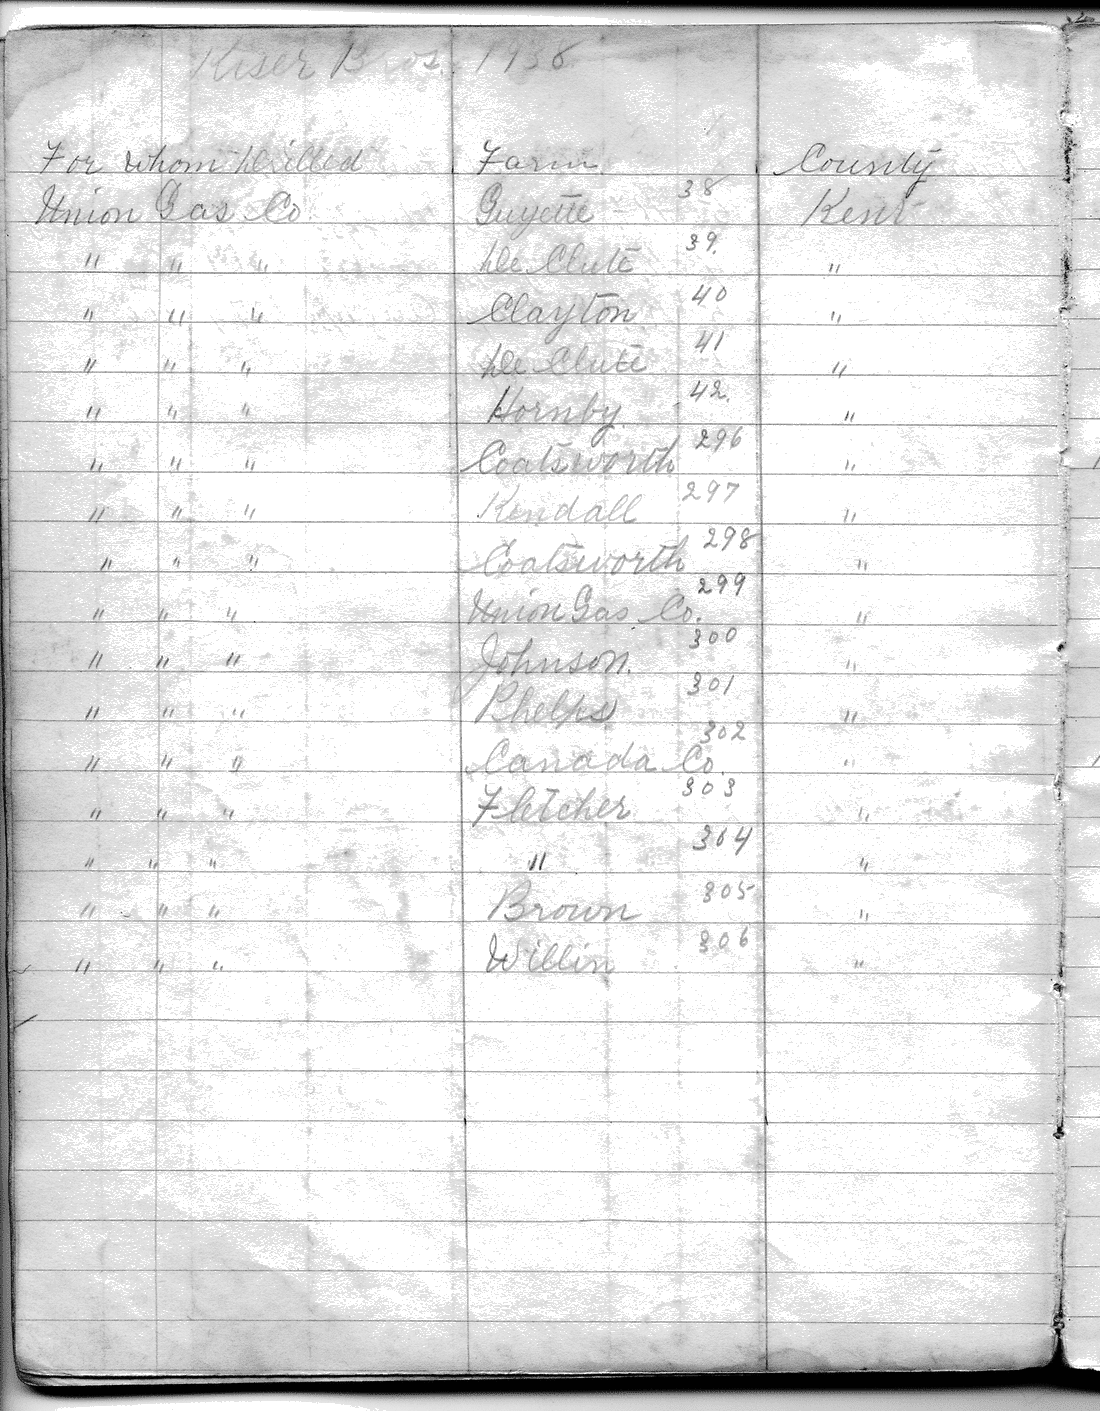 Kiser Bros. 1936
For whom Drilled Farm County
Union Gas Co Guyette 38 Kent
" " " De Clute 39. "
" " " Clayton 40 "
" " " De Clute 41 "
" " " Hornby 42. "
" " " Coatsworth 296 "
" " " Kendall 297 "
" " " Coatsworth 298 "
" " " Union Gas Co. 299 "
" " " Johnson. 300 "
" " " Phelps 301 "
" " " Canada Co. 302 "
" " " Fletcher 303 "
" " " " 304 "
" " " Brown 305 "
" " " Willin 306 "